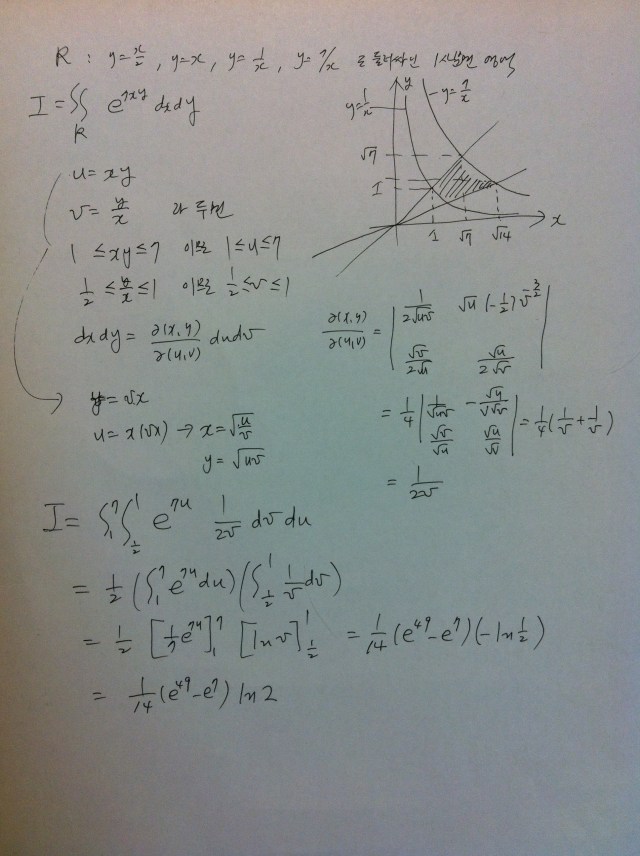 R : y=x/2 , y=x, y=1/x, y=7/x 로 둘러싸인 1사분면 영역
I = ∬_R e^{7xy} dxdy
y=1/x
y
y=7/x
√7
1
1 √7 √14
x
u = xy
v = y/x 라 두면
1 ≤ xy ≤ 7 이므로 1 ≤ u ≤ 7
1/2 ≤ y/x ≤ 1 이므로 1/2 ≤ v ≤ 1
dxdy = ∂(x,y)/∂(u,v) dudv
y = vx
u = x(vx) → x = √(u/v)
y = √(uv)
∂(x,y)/∂(u,v) = | 1/(2√(uv)) √u (-1/2) v^{-3/2} |
| √v/(2√u) √u/(2√v) |
= 1/4 | 1/√(uv) -√u/(v√v) | = 1/4 (1/v + 1/v)
| √v/√u √u/√v |
= 1/(2v)
I = ∫_1^7 ∫_{1/2}^1 e^{7u} 1/(2v) dv du
= 1/2 (∫_1^7 e^{7u} du) (∫_{1/2}^1 1/v dv)
= 1/2 [1/7 e^{7u}]_1^7 [ln v]_{1/2}^1 = 1/14 (e^{49} - e^7)(-ln 1/2)
= 1/14 (e^{49} - e^7) ln 2